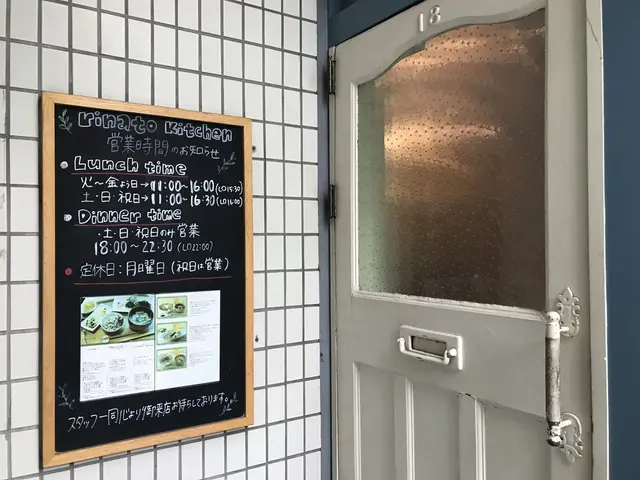 18
rinato kitchen
営業時間のお知らせ
Lunch time
火〜金よう日→11:00〜16:00(LO15:30)
土・日・祝日→11:00〜16:30(LO16:00)
Dinner time
・土・日・祝日のみ営業
18:00〜22:30(LO22:00)
定休日:月曜日(祝日は営業)
スタッフ一同心より御来店お待ちしております。